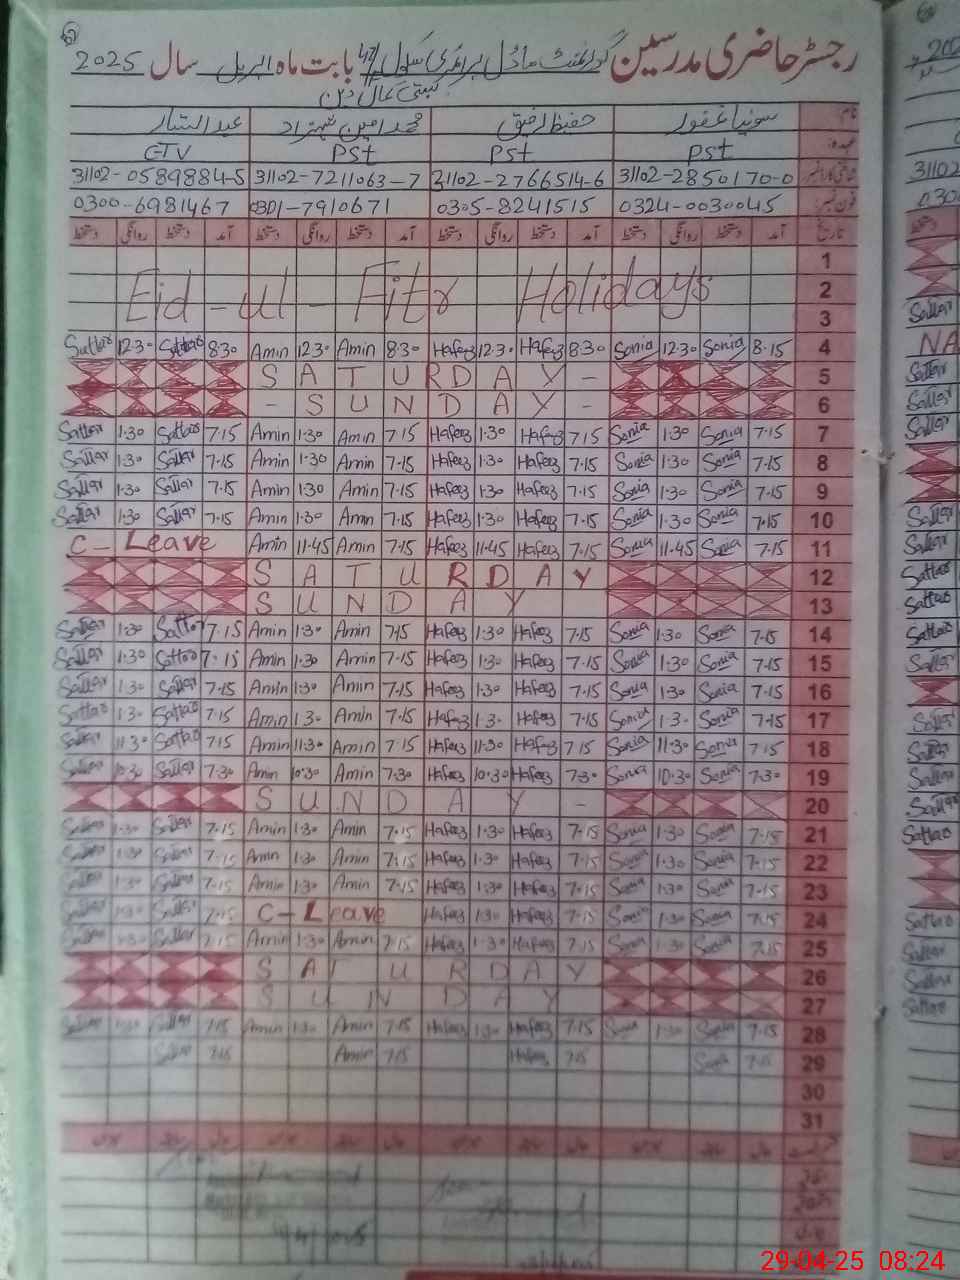 رجسٹر حاضری مدرسین گورنمنٹ ماڈل پرائمری سکول بابت ماہ اپریل سال 2025
بستی کمال دین
نام سونیا غفور حفیظ الرفیق محمد امین شہزاد عبدالستار
عہدہ PST PST PST CTV
31102-2850170-0 31102-2766514-6 31102-7211063-7 31102-0589884-5
فون نمبر 0324-0030045 0305-8241515 0301-7910671 0300-6981467
تاریخ آمد دستخط روانگی دستخط آمد دستخط روانگی دستخط آمد دستخط روانگی دستخط آمد دستخط روانگی دستخط
1
Eid-ul-Fitr Holidays 2
3
Sattar 12.30 Sattar 8.30 Amin 12.30 Amin 8.30 Hafeez 12.30 Hafeez 8.30 Sonia 12.30 Sonia 8.15 4
SATURDAY - 5
- SUNDAY - 6
Sattar 1.30 Sattar 7.15 Amin 1.30 Amin 7.15 Hafeez 1.30 Hafeez 7.15 Sonia 1.30 Sonia 7.15 7
Sattar 1.30 Sattar 7.15 Amin 1.30 Amin 7.15 Hafeez 1.30 Hafeez 7.15 Sonia 1.30 Sonia 7.15 8
Sattar 1.30 Sattar 7.15 Amin 1.30 Amin 7.15 Hafeez 1.30 Hafeez 7.15 Sonia 1.30 Sonia 7.15 9
Sattar 1.30 Sattar 7.15 Amin 1.30 Amin 7.15 Hafeez 1.30 Hafeez 7.15 Sonia 1.30 Sonia 7.15 10
C-Leave Amin 11.45 Amin 7.15 Hafeez 11.45 Hafeez 7.15 Sonia 11.45 Sonia 7.15 11
SATURDAY 12
SUNDAY 13
Sattar 1.30 Sattar 7.15 Amin 1.30 Amin 7.15 Hafeez 1.30 Hafeez 7.15 Sonia 1.30 Sonia 7.15 14
Sattar 1.30 Sattar 7.15 Amin 1.30 Amin 7.15 Hafeez 1.30 Hafeez 7.15 Sonia 1.30 Sonia 7.15 15
Sattar 1.30 Sattar 7.15 Amin 1.30 Amin 7.15 Hafeez 1.30 Hafeez 7.15 Sonia 1.30 Sonia 7.15 16
Sattar 1.30 Sattar 7.15 Amin 1.30 Amin 7.15 Hafeez 1.30 Hafeez 7.15 Sonia 1.30 Sonia 7.15 17
Sattar 11.30 Sattar 7.15 Amin 11.30 Amin 7.15 Hafeez 11.30 Hafeez 7.15 Sonia 11.30 Sonia 7.15 18
Sattar 10.30 Sattar 7.30 Amin 10.30 Amin 7.30 Hafeez 10.30 Hafeez 7.30 Sonia 10.30 Sonia 7.30 19
SUNDAY - 20
Sattar 1.30 Sattar 7.15 Amin 1.30 Amin 7.15 Hafeez 1.30 Hafeez 7.15 Sonia 1.30 Sonia 7.15 21
Sattar 1.30 Sattar 7.15 Amin 1.30 Amin 7.15 Hafeez 1.30 Hafeez 7.15 Sonia 1.30 Sonia 7.15 22
Sattar 1.30 Sattar 7.15 Amin 1.30 Amin 7.15 Hafeez 1.30 Hafeez 7.15 Sonia 1.30 Sonia 7.15 23
Sattar 1.30 Sattar 7.15 C-Leave Hafeez 1.30 Hafeez 7.15 Sonia 1.30 Sonia 7.15 24
Sattar 1.30 Sattar 7.15 Amin 1.30 Amin 7.15 Hafeez 1.30 Hafeez 7.15 Sonia 1.30 Sonia 7.15 25
SATURDAY 26
SUNDAY 27
Sattar 1.30 Sattar 7.15 Amin 1.30 Amin 7.15 Hafeez 1.30 Hafeez 7.15 Sonia 1.30 Sonia 7.15 28
Sattar 7.15 Amin 7.15 Hafeez 7.15 Sonia 7.15 29
30
31
29-04-25 08:24